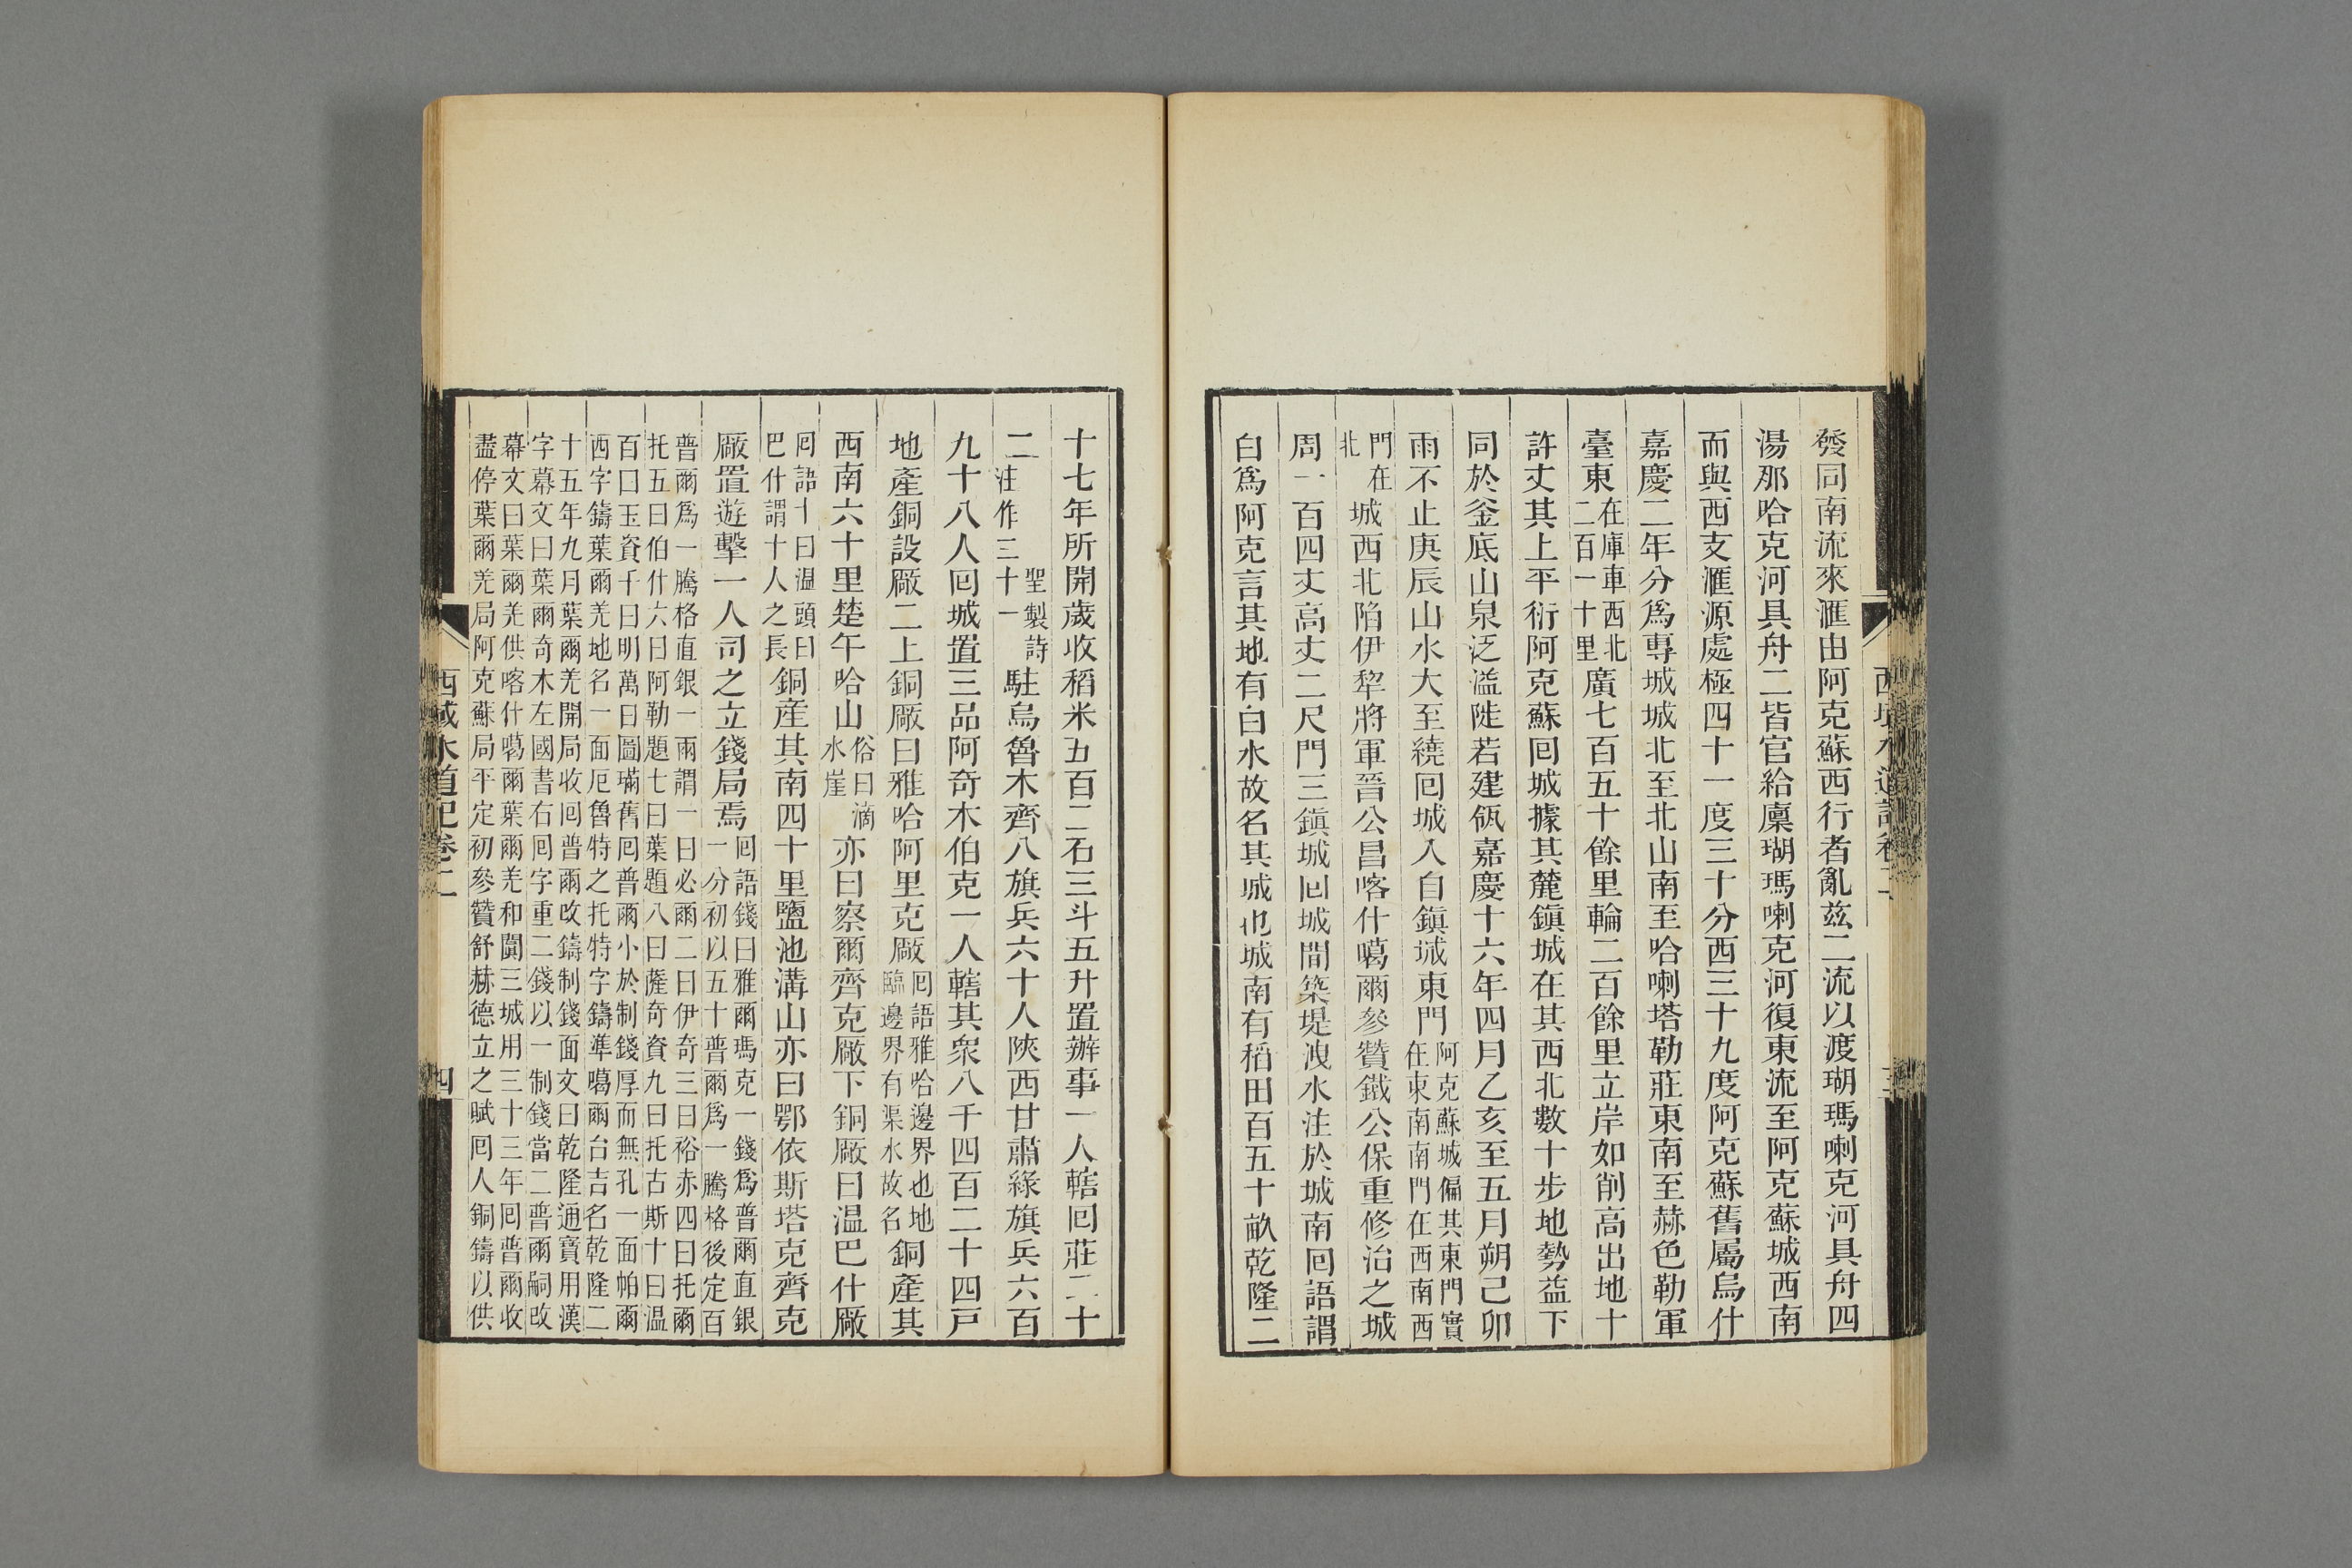 發同南流來滙由阿克蘇西行者亂茲二流以渡瑚瑪喇克河具舟四
湯那哈克河具舟二皆官給廩瑚瑪喇克河復東流至阿克蘇城西南
而與西支滙源處極四十一度三十分西三十九度阿克蘇舊屬烏什
嘉慶二年分爲專城城北至北山南至哈喇塔勒莊東南至赫色勒軍
臺東在庫車西北二百一十里廣七百五十餘里輪二百餘里立岸如削高出地十
許丈其上平衍阿克蘇囘城據其麓鎮城在其西北數十步地勢益下
同於釜底山泉泛溢陡若建瓴嘉慶十六年四月乙亥至五月朔己卯
雨不止庚辰山水大至繞囘城入自鎮城東門阿克蘇城偏其東門實在東南南門在西南西
門在北城西北陷伊犂將軍晉公昌喀什噶爾參贊鐵公保重修治之城
周一百四丈高丈二尺門三鎮城囘城間築堤洩水注於城南囘語謂
白爲阿克言其地有白水故名其城也城南有稻田百五十畝乾隆二
十七年所開歲收稻米五百二石三斗五升置辦事一人轄囘莊二十
二聖製詩注作三十一駐烏魯木齊八旗兵六十人陝西甘肅綠旗兵六百
九十八人囘城置三品阿奇木伯克一人轄其衆八千四百二十四戸
地產銅設厰二上銅厰曰雅哈阿里克厰囘語雅哈邊界也地臨邊界有渠水故名銅產其
西南六十里楚午哈山俗曰滴水崖亦曰察爾齊克厰下銅厰曰温巴什厰
囘語十曰温頭曰巴什謂十人之長銅産其南四十里鹽池溝山亦曰鄂依斯塔克齊克
厰置遊擊一人司之立錢局焉囘語錢曰雅爾瑪克一錢爲普爾直銀一分初以五十普爾爲一騰格後定百
普爾爲一騰格直銀一兩謂一曰必爾二曰伊奇三曰裕赤四曰托爾
托五曰伯什六曰阿勒題七曰葉題八曰薩奇資九曰托古斯十曰温
百曰玉資千曰明萬曰圖瑞舊囘普爾小於制錢厚而無孔一面帕爾
西字鑄葉爾羌地名一面厄魯特之托特字鑄準噶爾台吉名乾隆二
十五年九月葉爾羌開局收囘普爾改鑄制錢面文曰乾隆通寶用漢
字幕文曰葉爾奇木左國書右囘字重二錢以一制錢當二普爾嗣改
幕文曰葉爾羌供喀什噶爾葉爾羌和闐三城用三十三年囘普爾收
盡停葉爾羌局阿克蘇局平定初參贊舒赫德立之賦囘人銅鑄以供
西域水道記卷二
四